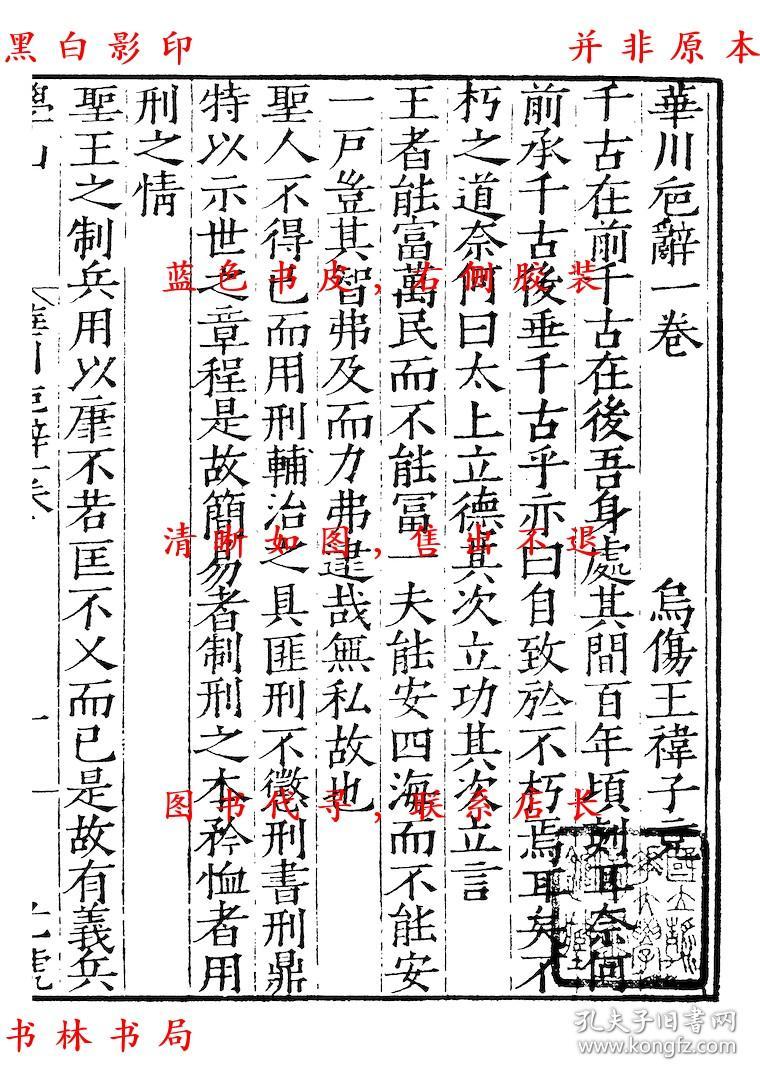 黑白影印
并非原本
華川卮辭一卷
烏傷王褘子充
千古在前千古在後吾身處其間百年頃刻耳奈何
前承千古後垂千古乎亦曰自致於不朽焉耳矣不
朽之道奈何曰太上立德其次立功其次立言
王者能富萬民而不能冨一夫能安四海而不能安
一戸豈其智弗及而力弗逮哉無私故也
聖人不得已而用刑輔治之具匪刑不懲刑書刑鼎
特以示世之章程是故簡易者制刑之本矜恤者用
刑之情
聖王之制兵用以康不若匡不乂而已是故有義兵
華川卮辭一卷
一
蓝色书皮，右侧胶装
清晰如图，售出不退
图书代寻，联系店长
书林书局
孔夫子旧书网
www.kongfz.com